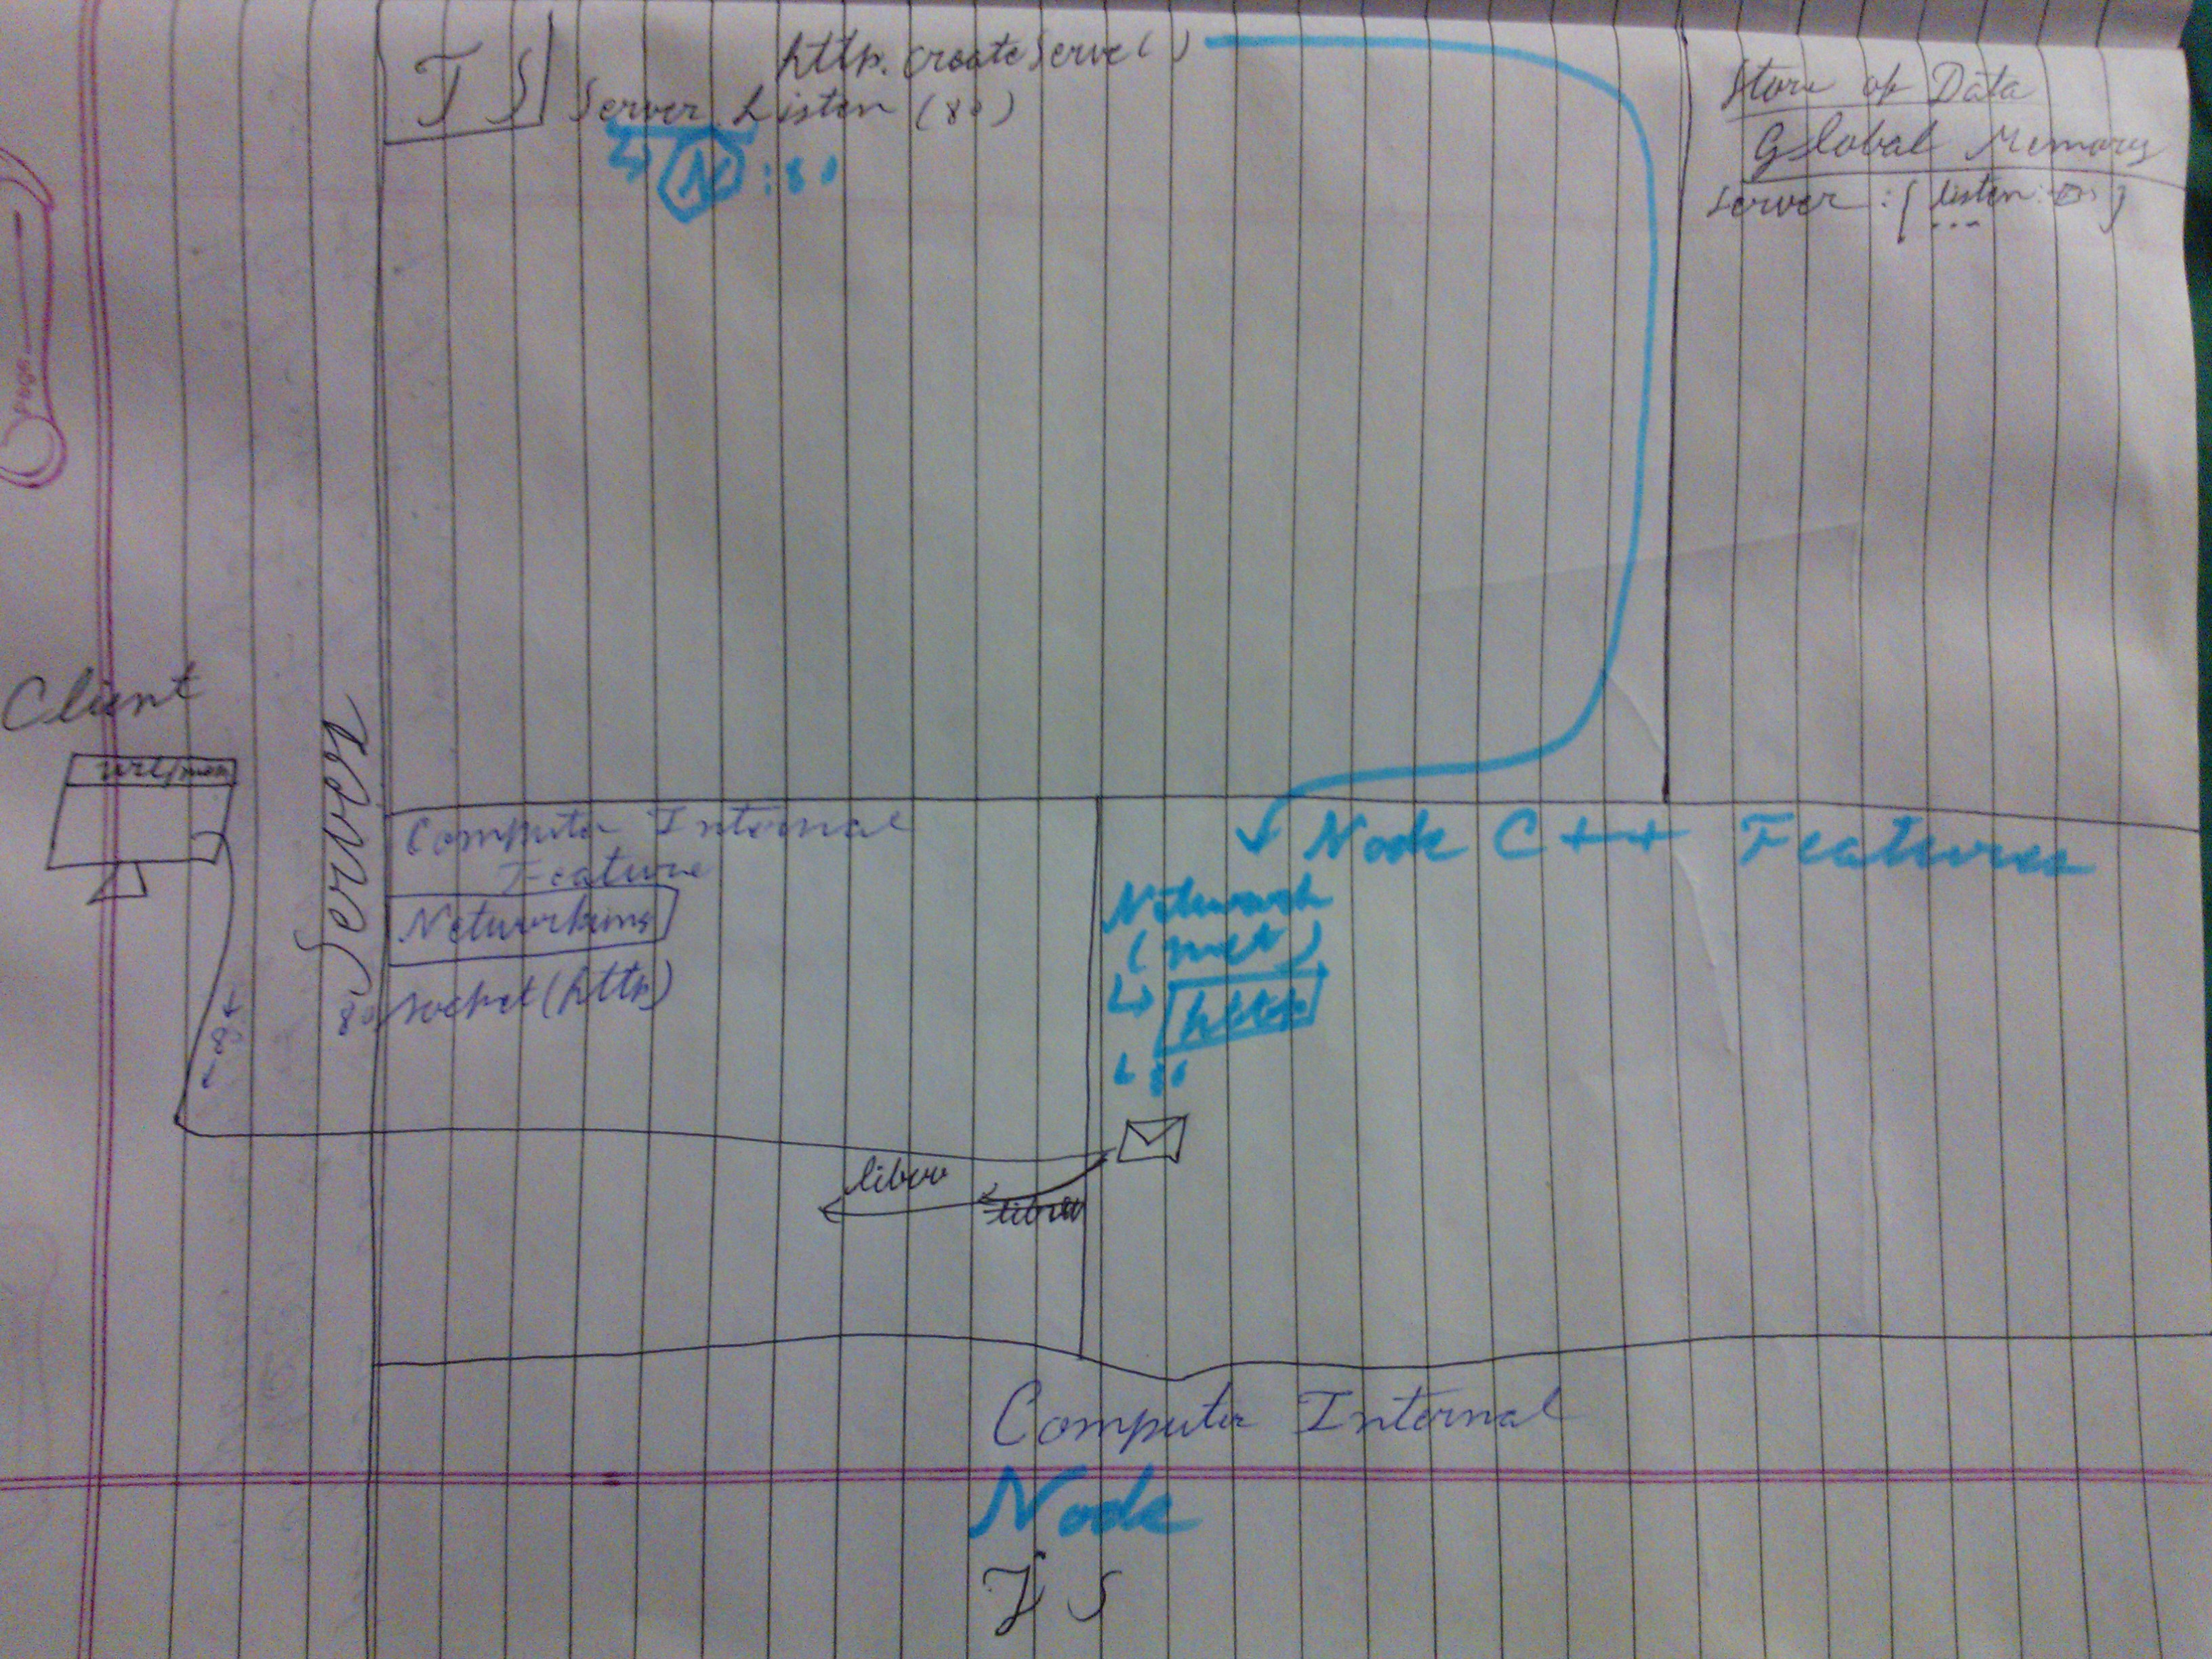 JS
http. createServe( )
Server Listen (80)
↳ N :80
Store of Data
Global Memory
Server : { listen: }
...
Client
url/
Server
Computer Internal
Feature
Networking
80 socket (http)
← 80 →
Node C++ Features
Network
(net)
↳ http
↳ 80
libuv
Computer Internal
Node
JS
page